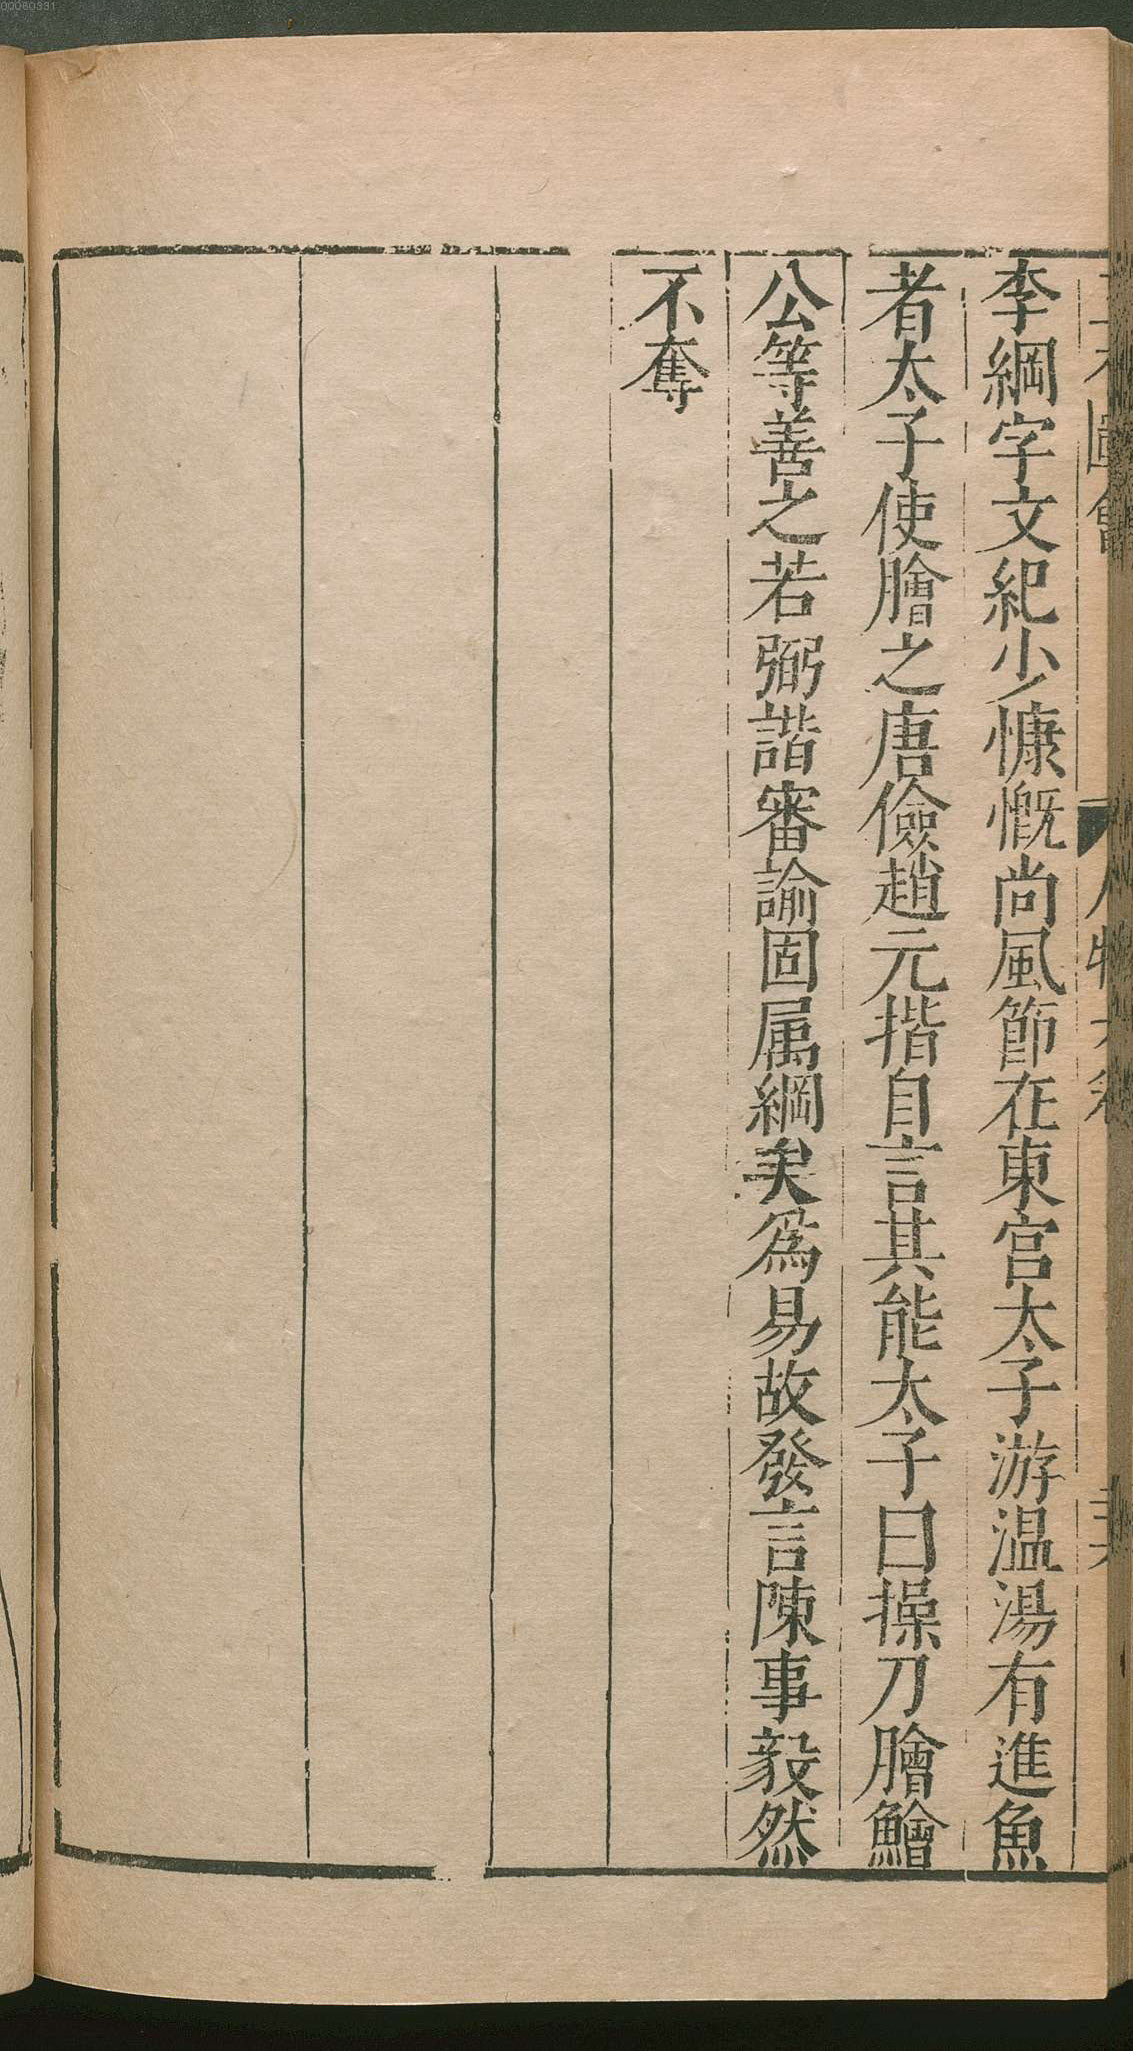 李綱字文紀少慷慨尚風節在東宮太子游温湯有進魚
者太子使膾之唐儉趙元揩自言其能太子曰操刀膾鱠
公等善之若弼諧審諭固属綱矣爲易故發言陳事毅然
不奪
00060331